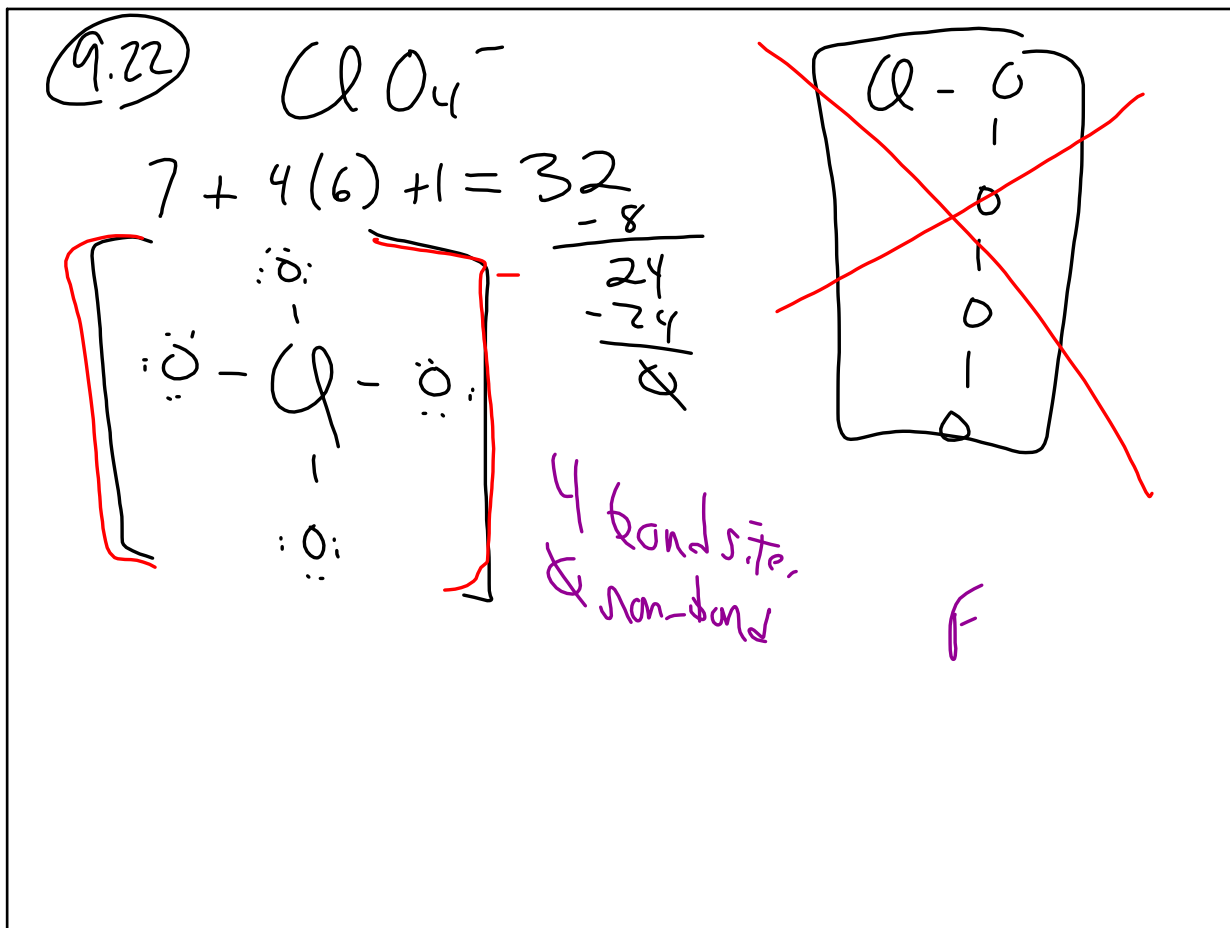 9.22
ClO₄⁻
7 + 4(6) + 1 = 32
- 8
24
- 24
0
:Ö:
:Ö - Cl - Ö:
:O:
-
Cl - O
O
O
O
4 bond site.
0 non-bond
F